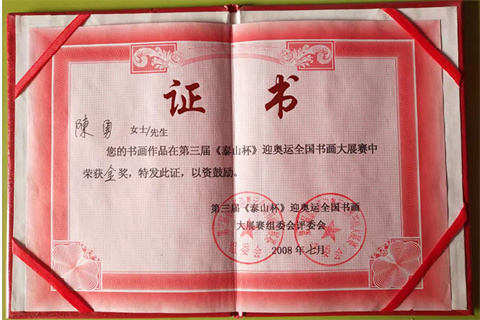 证 书
陳勇 女士/先生
您的书画作品在第三届《泰山杯》迎奥运全国书画大展赛中
荣获金奖，特发此证，以资鼓励。
第三届《泰山杯》迎奥运全国书画
大展赛组委会评委会
组委会
2008年七月